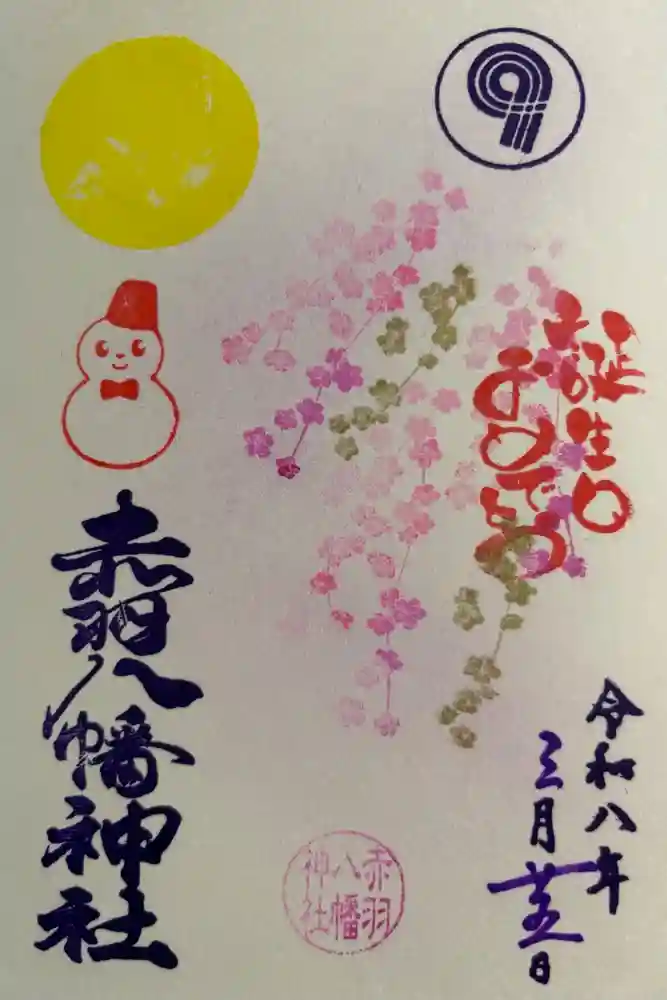 お誕生日
おめでとう
令和八年
三月廿五日
赤羽
八幡
神社
赤羽八幡神社